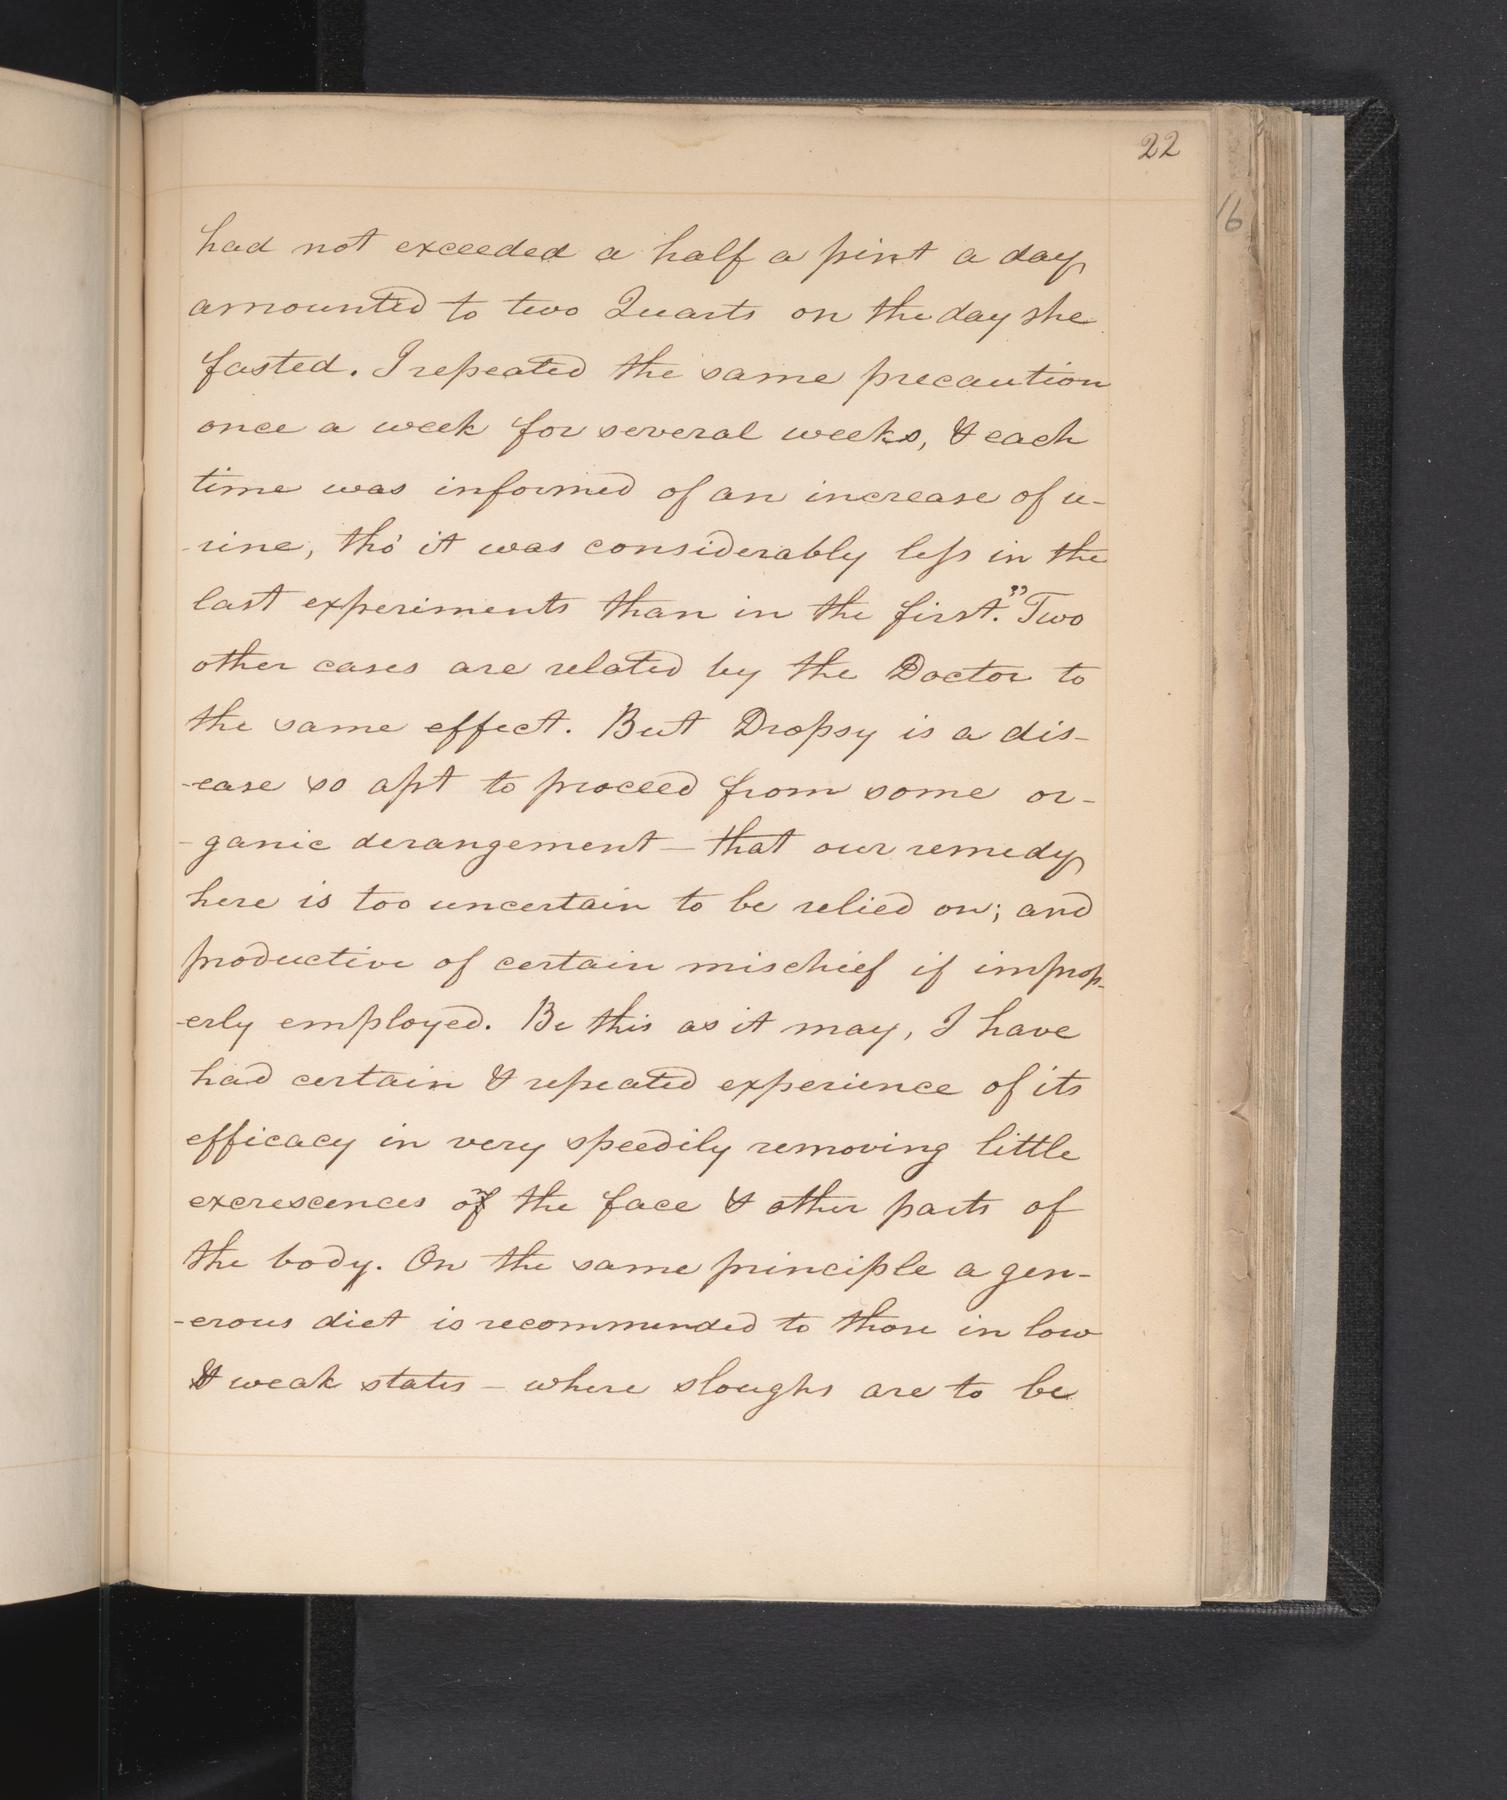 22
16
had not exceeded a half a pint a day
amounted to two Quarts on the day she
fasted. I repeated the same precaution
once a week for several weeks, & each
time was informed of an increase of u-
-rine, tho' it was considerably less in the
last experiments than in the first." Two
other cases are related by the Doctor to
the same effect. But Dropsy is a dis-
-ease so apt to proceed from some or-
-ganic derangement - that our remedy
here is too uncertain to be relied on; and
productive of certain mischief if improp-
-erly employed. Be this as it may, I have
had certain & repeated experience of its
efficacy in very speedily removing little
excrescences of the face & other parts of
the body. On the same principle a gen-
-erous diet is recommended to those in low
& weak states - where sloughs are to be